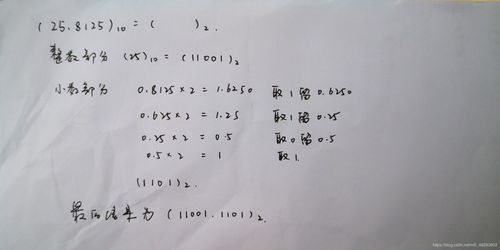 (25.8125)₁₀ = (      )₂.
整数部分 (25)₁₀ = (11001)₂
小数部分 0.8125 × 2 = 1.6250 取1留0.6250
0.625 × 2 = 1.25 取1留0.25
0.25 × 2 = 0.5 取0留0.5
0.5 × 2 = 1 取1.
(1101)₂.
最后结果为 (11001.1101)₂.